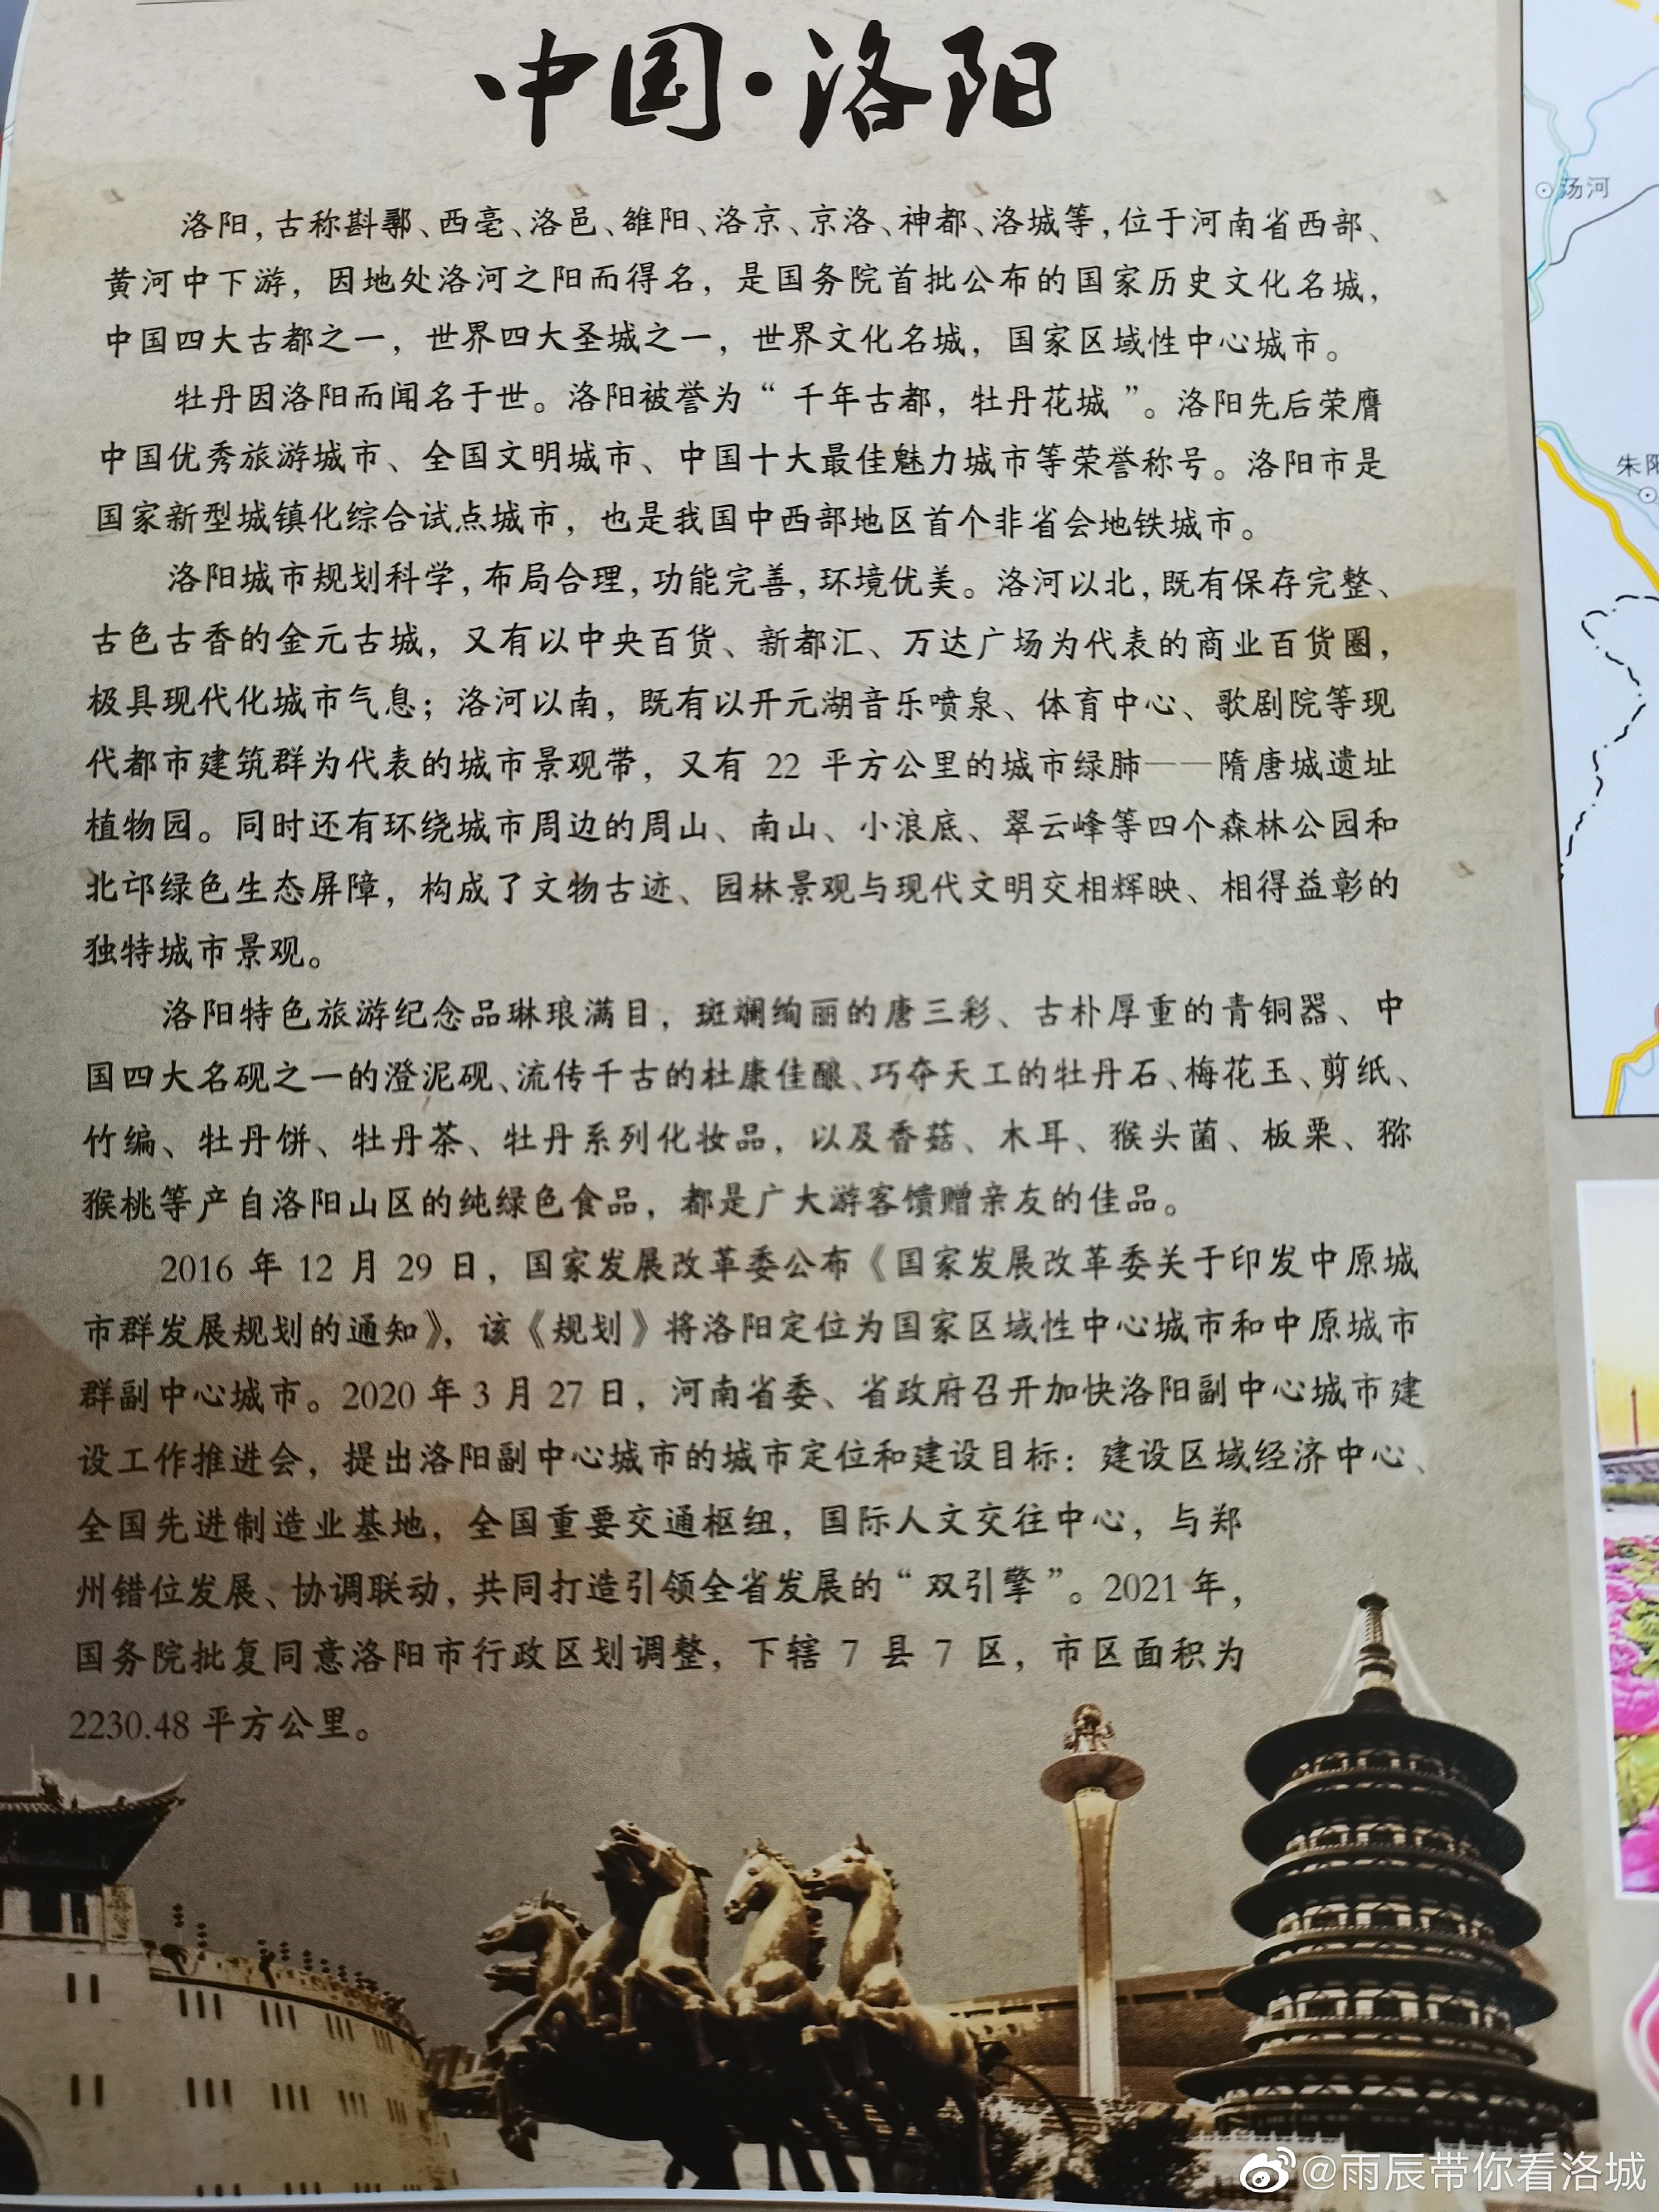 中国·洛阳
洛阳,古称斟鄩、西亳、洛邑、雒阳、洛京、京洛、神都、洛城等,位于河南省西部、
黄河中下游，因地处洛河之阳而得名，是国务院首批公布的国家历史文化名城，
中国四大古都之一，世界四大圣城之一，世界文化名城，国家区域性中心城市。
牡丹因洛阳而闻名于世。洛阳被誉为“千年古都，牡丹花城”。洛阳先后荣膺
中国优秀旅游城市、全国文明城市、中国十大最佳魅力城市等荣誉称号。洛阳市是
国家新型城镇化综合试点城市，也是我国中西部地区首个非省会地铁城市。
洛阳城市规划科学,布局合理,功能完善,环境优美。洛河以北,既有保存完整、
古色古香的金元古城，又有以中央百货、新都汇、万达广场为代表的商业百货圈，
极具现代化城市气息；洛河以南，既有以开元湖音乐喷泉、体育中心、歌剧院等现
代都市建筑群为代表的城市景观带，又有 22 平方公里的城市绿肺——隋唐城遗址
植物园。同时还有环绕城市周边的周山、南山、小浪底、翠云峰等四个森林公园和
北邙绿色生态屏障，构成了文物古迹、园林景观与现代文明交相辉映、相得益彰的
独特城市景观。
洛阳特色旅游纪念品琳琅满目，斑斓绚丽的唐三彩、古朴厚重的青铜器、中
国四大名砚之一的澄泥砚、流传千古的杜康佳酿、巧夺天工的牡丹石、梅花玉、剪纸、
竹编、牡丹饼、牡丹茶、牡丹系列化妆品，以及香菇、木耳、猴头菌、板栗、猕
猴桃等产自洛阳山区的纯绿色食品，都是广大游客馈赠亲友的佳品。
2016 年 12 月 29 日，国家发展改革委公布《国家发展改革委关于印发中原城
市群发展规划的通知》，该《规划》将洛阳定位为国家区域性中心城市和中原城市
群副中心城市。2020 年 3 月 27 日，河南省委、省政府召开加快洛阳副中心城市建
设工作推进会，提出洛阳副中心城市的城市定位和建设目标：建设区域经济中心、
全国先进制造业基地，全国重要交通枢纽，国际人文交往中心，与郑
州错位发展、协调联动，共同打造引领全省发展的“双引擎”。2021 年，
国务院批复同意洛阳市行政区划调整，下辖 7 县 7 区，市区面积为
2230.48 平方公里。
汤河
朱阳
@雨辰带你看洛城